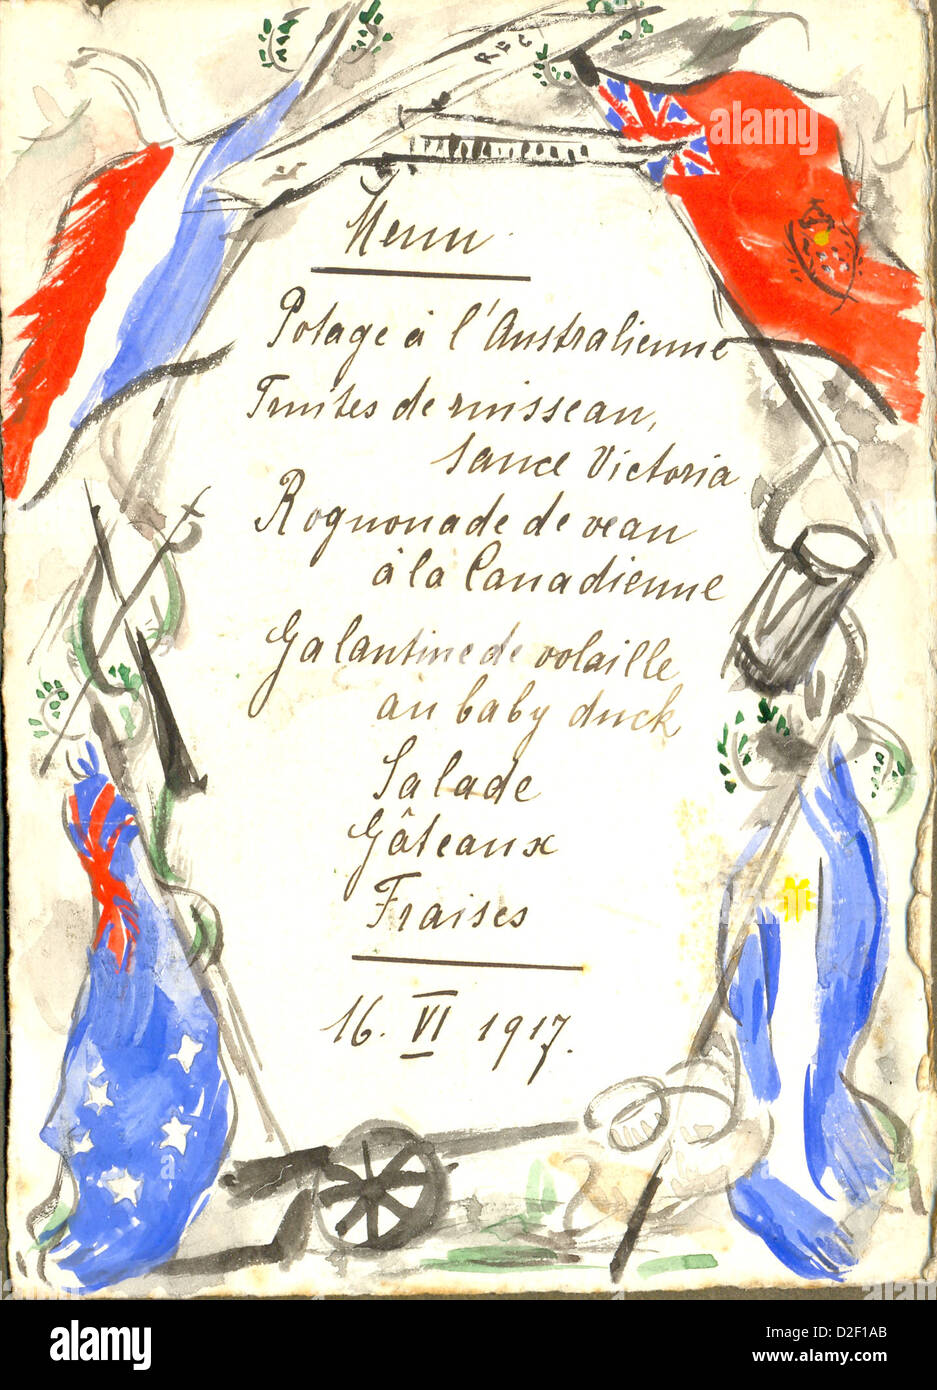 RFC
Menu
Potage à l'Australienne
Truites de ruisseau,
sauce Victoria
Rognonade de veau
à la Canadienne
Galantine de volaille
au baby duck
Salade
Gâteaux
Fraises
16. VI 1917.
alamy
alamy
Image ID: D2F1AB
www.alamy.com